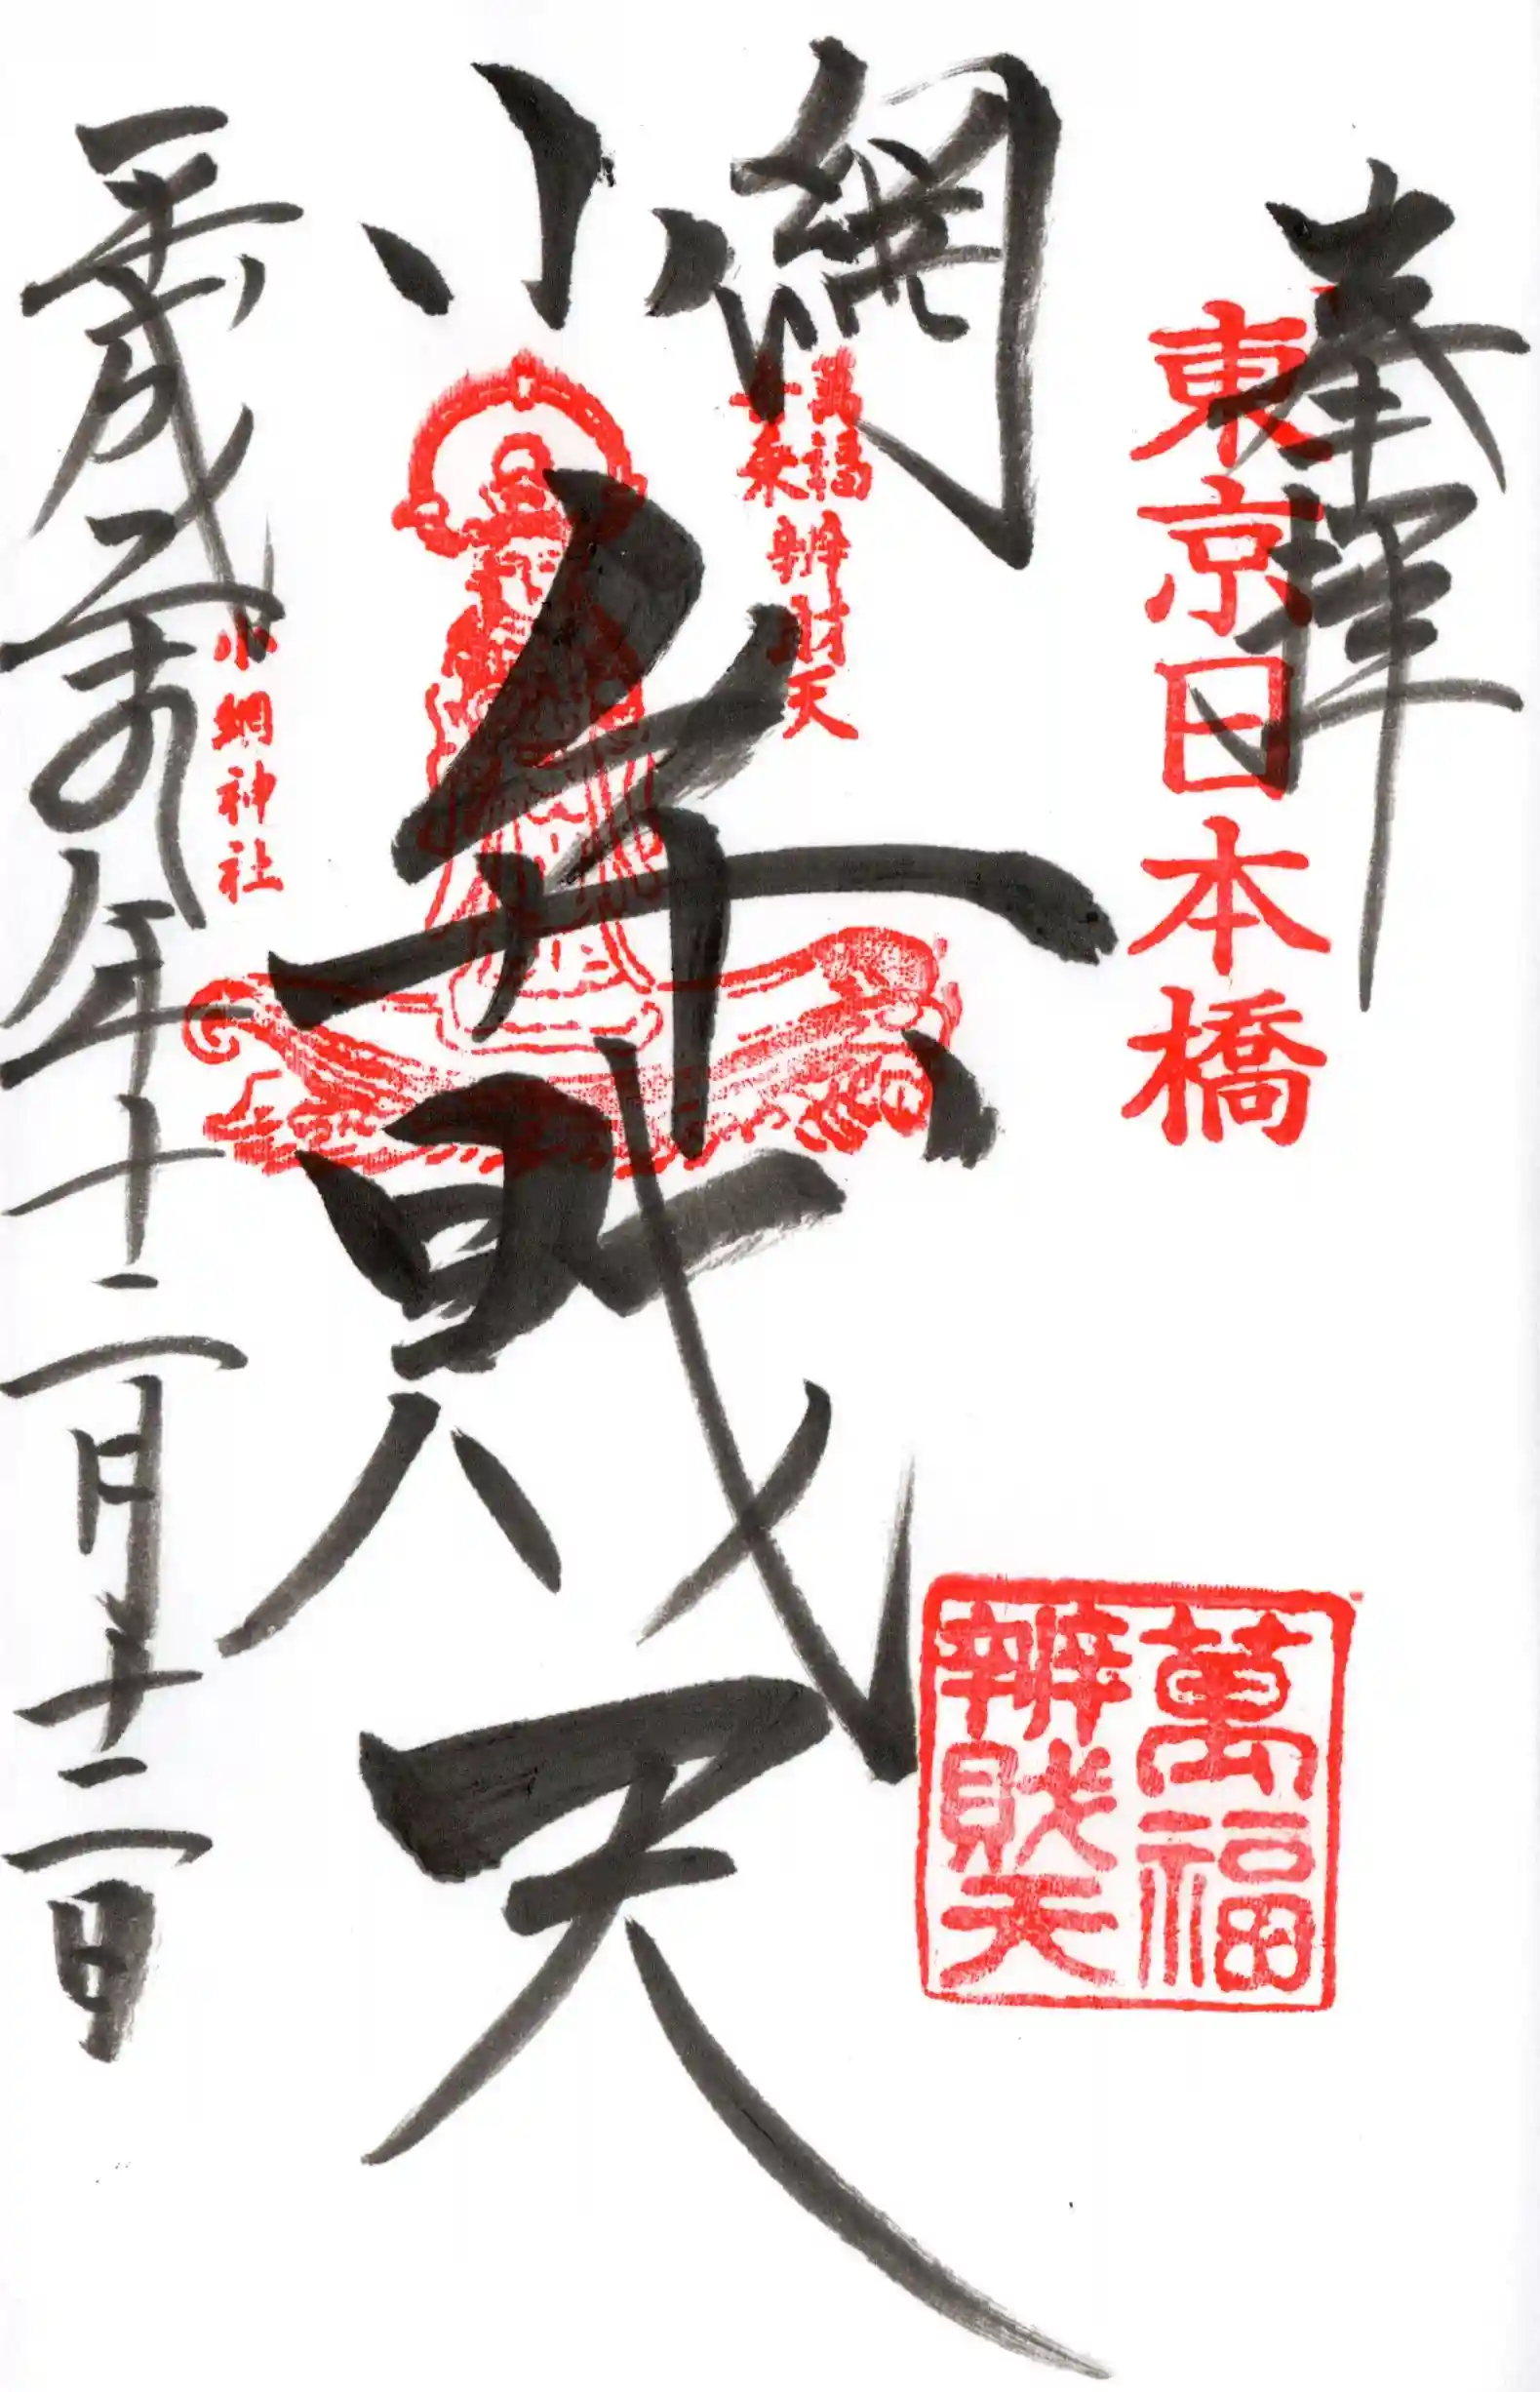 奉拝
東京日本橋
小網
弁財天
萬福
舟乗
辨財天
萬福
辨財天
小網神社
平成二十九年十二月十二日